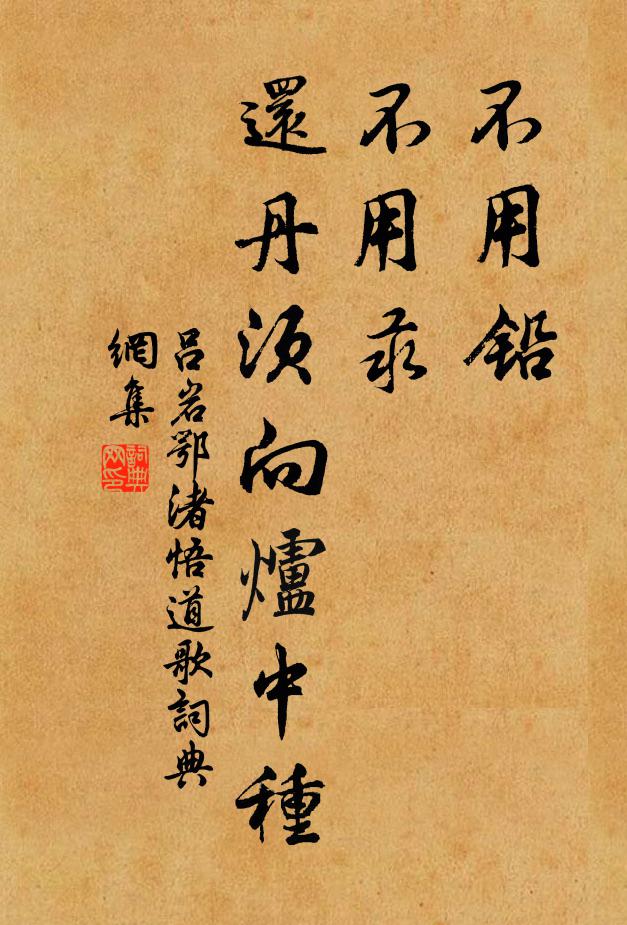 不用鉛
不用汞
還丹須向爐中種
呂岩鄂渚悟道歌詞典
網集
詞典
網印